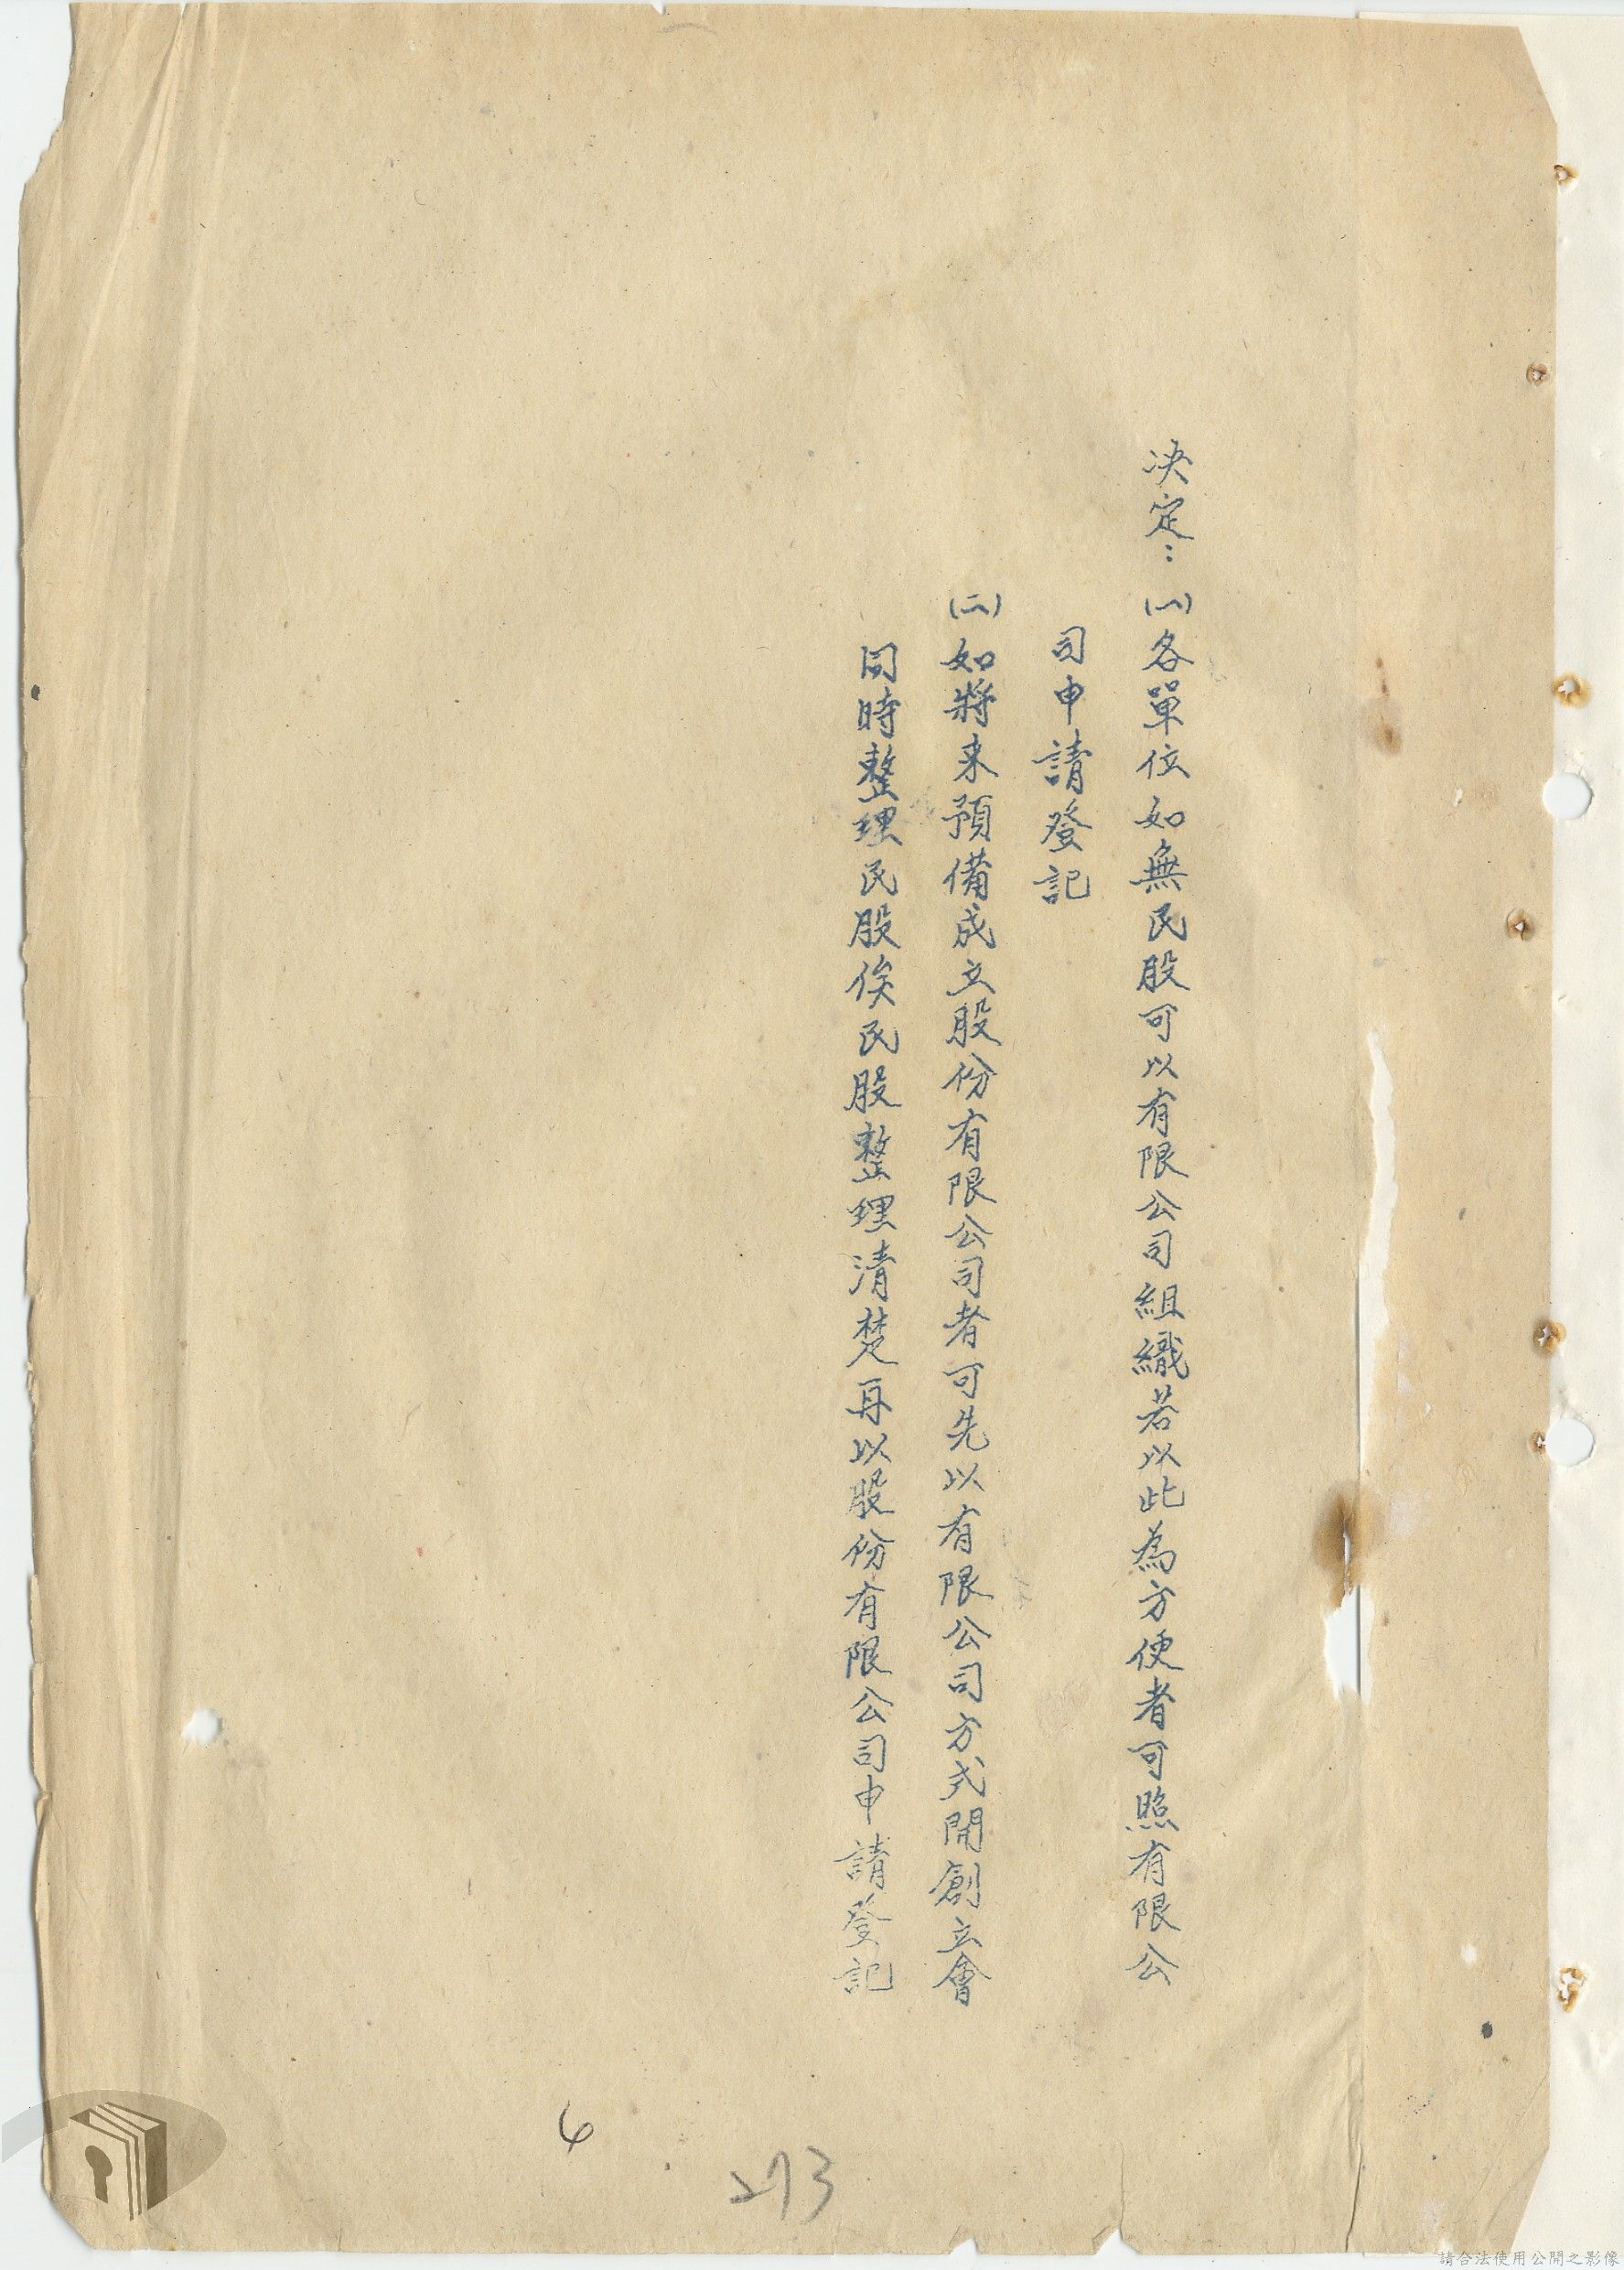 決定：(一)各單位如無民股可以有限公司組織若以此為方便者可照有限公
司申請登記
(二)如將來預備成立股份有限公司者可先以有限公司方式開創立會
同時整理民股俟民股整理清楚再以股份有限公司申請登記
6
273
請合法使用公開之影像